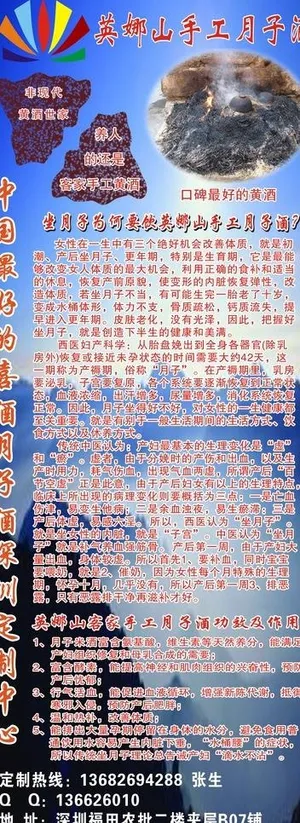 英娜山手工月子酒
非现代
黄酒世家
养人
的还是
客家手工黄酒
口碑最好的黄酒
中国最好的喜酒月子酒深圳定制中心
坐月子为何要饮英娜山手工月子酒?
女性在一生中有三个绝好机会改善体质，就是初
潮、产后坐月子、更年期，特别是生育期，它是最能
够改变女人体质的最大机会，利用正确的食补和适当
的休息，恢复产前原貌，使变形的内脏恢复弹性，改
造体质，若坐月子不当，有可能生完一胎老了十岁，
变成水桶体形，体力不支，骨质疏松，钙质流失，提
早进入更年期。皮肤老化，没有光泽，因此，把握好
坐月子，就是创造下半生的健康和美满。
西医妇产科学：从胎盘娩出到全身各器官(除乳
房外)恢复或接近未孕状态的时间需要大约42天，这
一期称为产褥期，俗称“月子”。在产褥期里，乳房
要泌乳，子宫要复原，各个系统要逐渐恢复到正常状
态，血液浓缩，出汗增多，尿量增多，消化系统恢复
正常。因此，月子坐得好不好，对女性的一生健康都
至关重要。就是有别于一般生活期间的生活方式、饮
食方式以及休养方式。
传统中医认为：产妇最基本的生理变化是“虚”
和“瘀”。虚者，由于分娩时的产伤和出血，以及生
产时用力，耗气伤血，出现气血两虚，所谓产后“百
节空虚”正是此意，由于产后妇女有以上的生理特点，
临床上所出现的病理变化则要概括为三点：一是亡血
伤津，易变生他病；二是余血浊夜，易生瘀滞；三是
产后体虚，易感六淫。所以，西医认为“坐月子”，
就是坐女性的内脏，就是“子宫”。中医认为“坐月
子”就是补气养血强筋骨。产后第一周，由于产妇大
量出血，身体较虚，所以首先1、要补血，同时宝宝
要喂奶，
露，只有恶露排干净再滋补才好。
英娜山客家手工月子酒功效及作用
1、月子米酒富含氨基酸，维生素等天然养分，能满足
产妇组织修复和母乳合成的需要；
2、富含酵素，能提高神经和肌肉组织的兴奋性，预防
产后忧郁；
3、行气活血，能促进血液循环，增强新陈代谢，抵御
奉邪入侵，预防产后肥胖；
4、温和热补，改善体质；
5、能排出大量孕期停留在身体的水分，避免食用普
通饮用水容易产生内脏下垂，“水桶腰”的症状，
所以传统坐月子理论总告诫产妇“滴水不沾”。
定制热线：13682694288 张生
Q Q：136626010
地 址：深圳福田农批二楼夹层B07铺